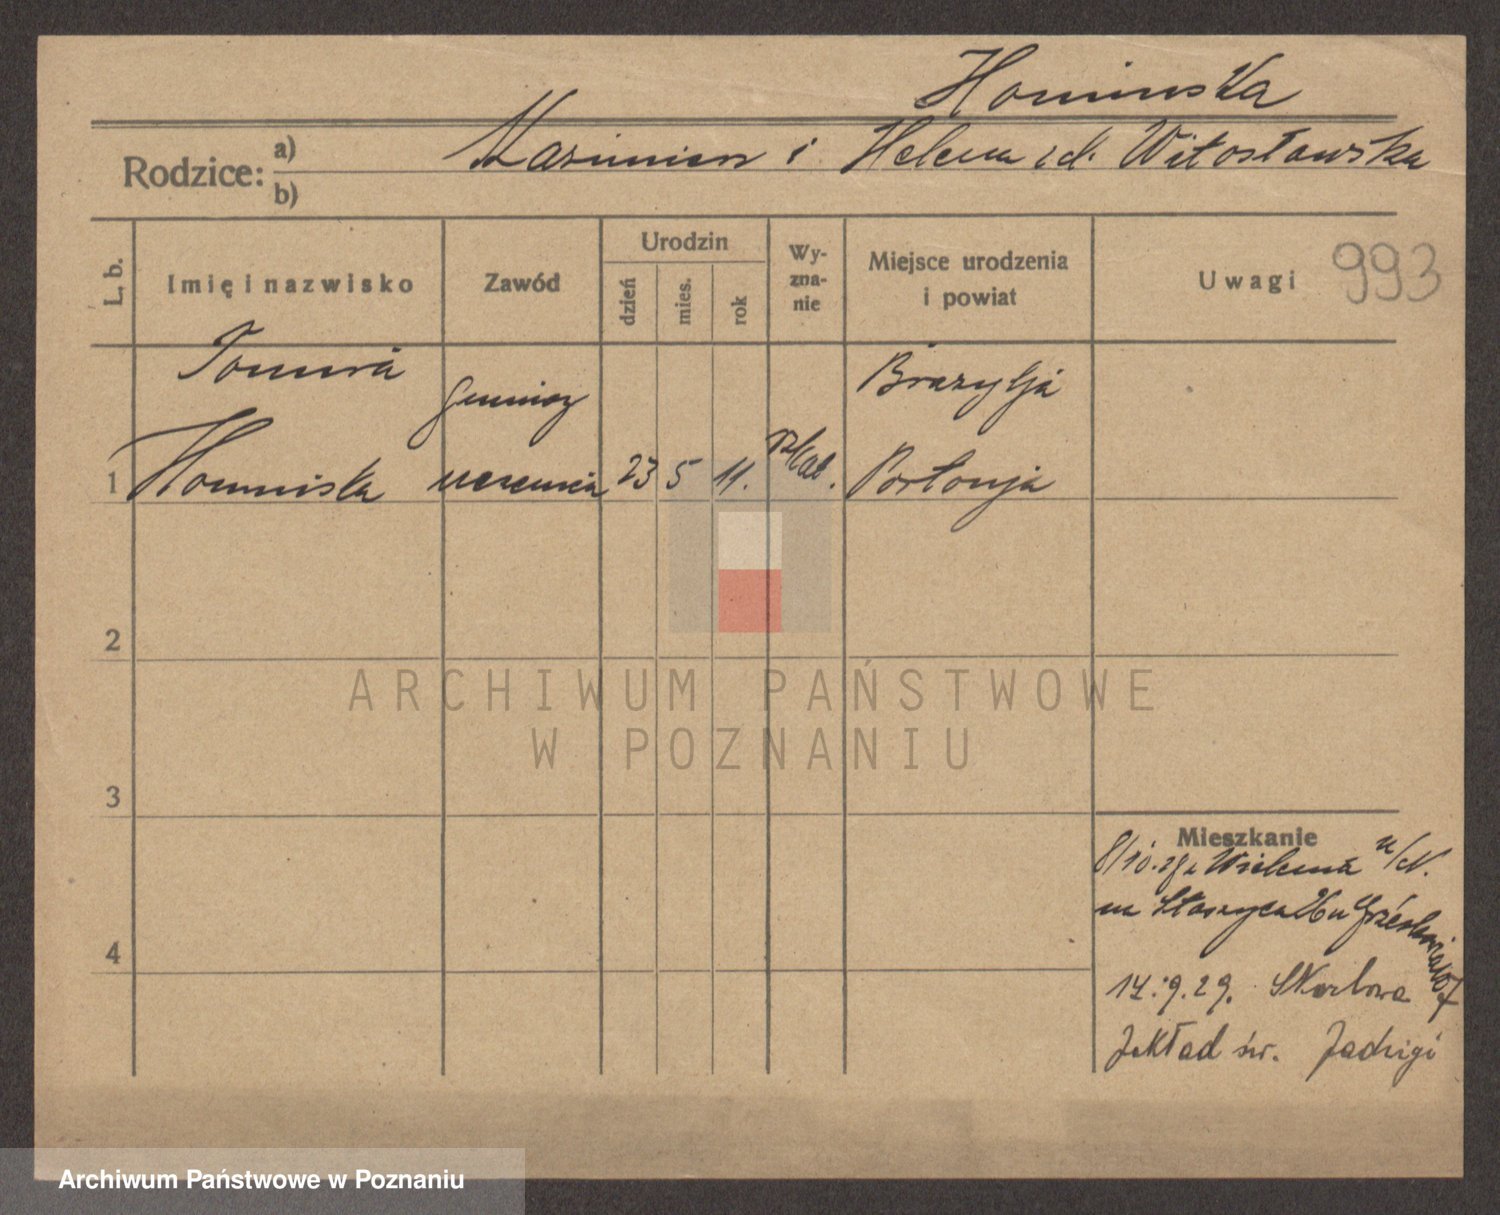 Hominska
Rodzice: a) Kazimierz i Helena zd. Witosławska
b)
L. b.
Imię i nazwisko
Zawód
Urodzin
dzień
mies.
rok
Wy-
zna-
nie
Miejsce urodzenia
i powiat
Uwagi
993
Brazylja
1 Hominska uczenica 23 5 11. Rzkat. Portonja
2
3
4
Mieszkanie
8/10. Wieluniá n/N.
Staszyca
14.9.29.
Zakład św. Jadwigi
ARCHIWUM PAŃSTWOWE
W POZNANIU
Archiwum Państwowe w Poznaniu